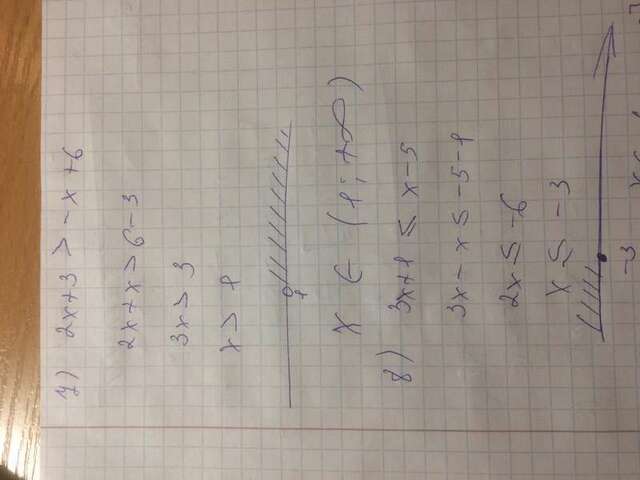 7) 2x+3 > -x+6
2x+x > 6-3
3x > 3
x > 1
1
x ∈ (1; +∞)
8) 3x+1 ≤ x-5
3x-x ≤ -5-1
2x ≤ -6
x ≤ -3
-3